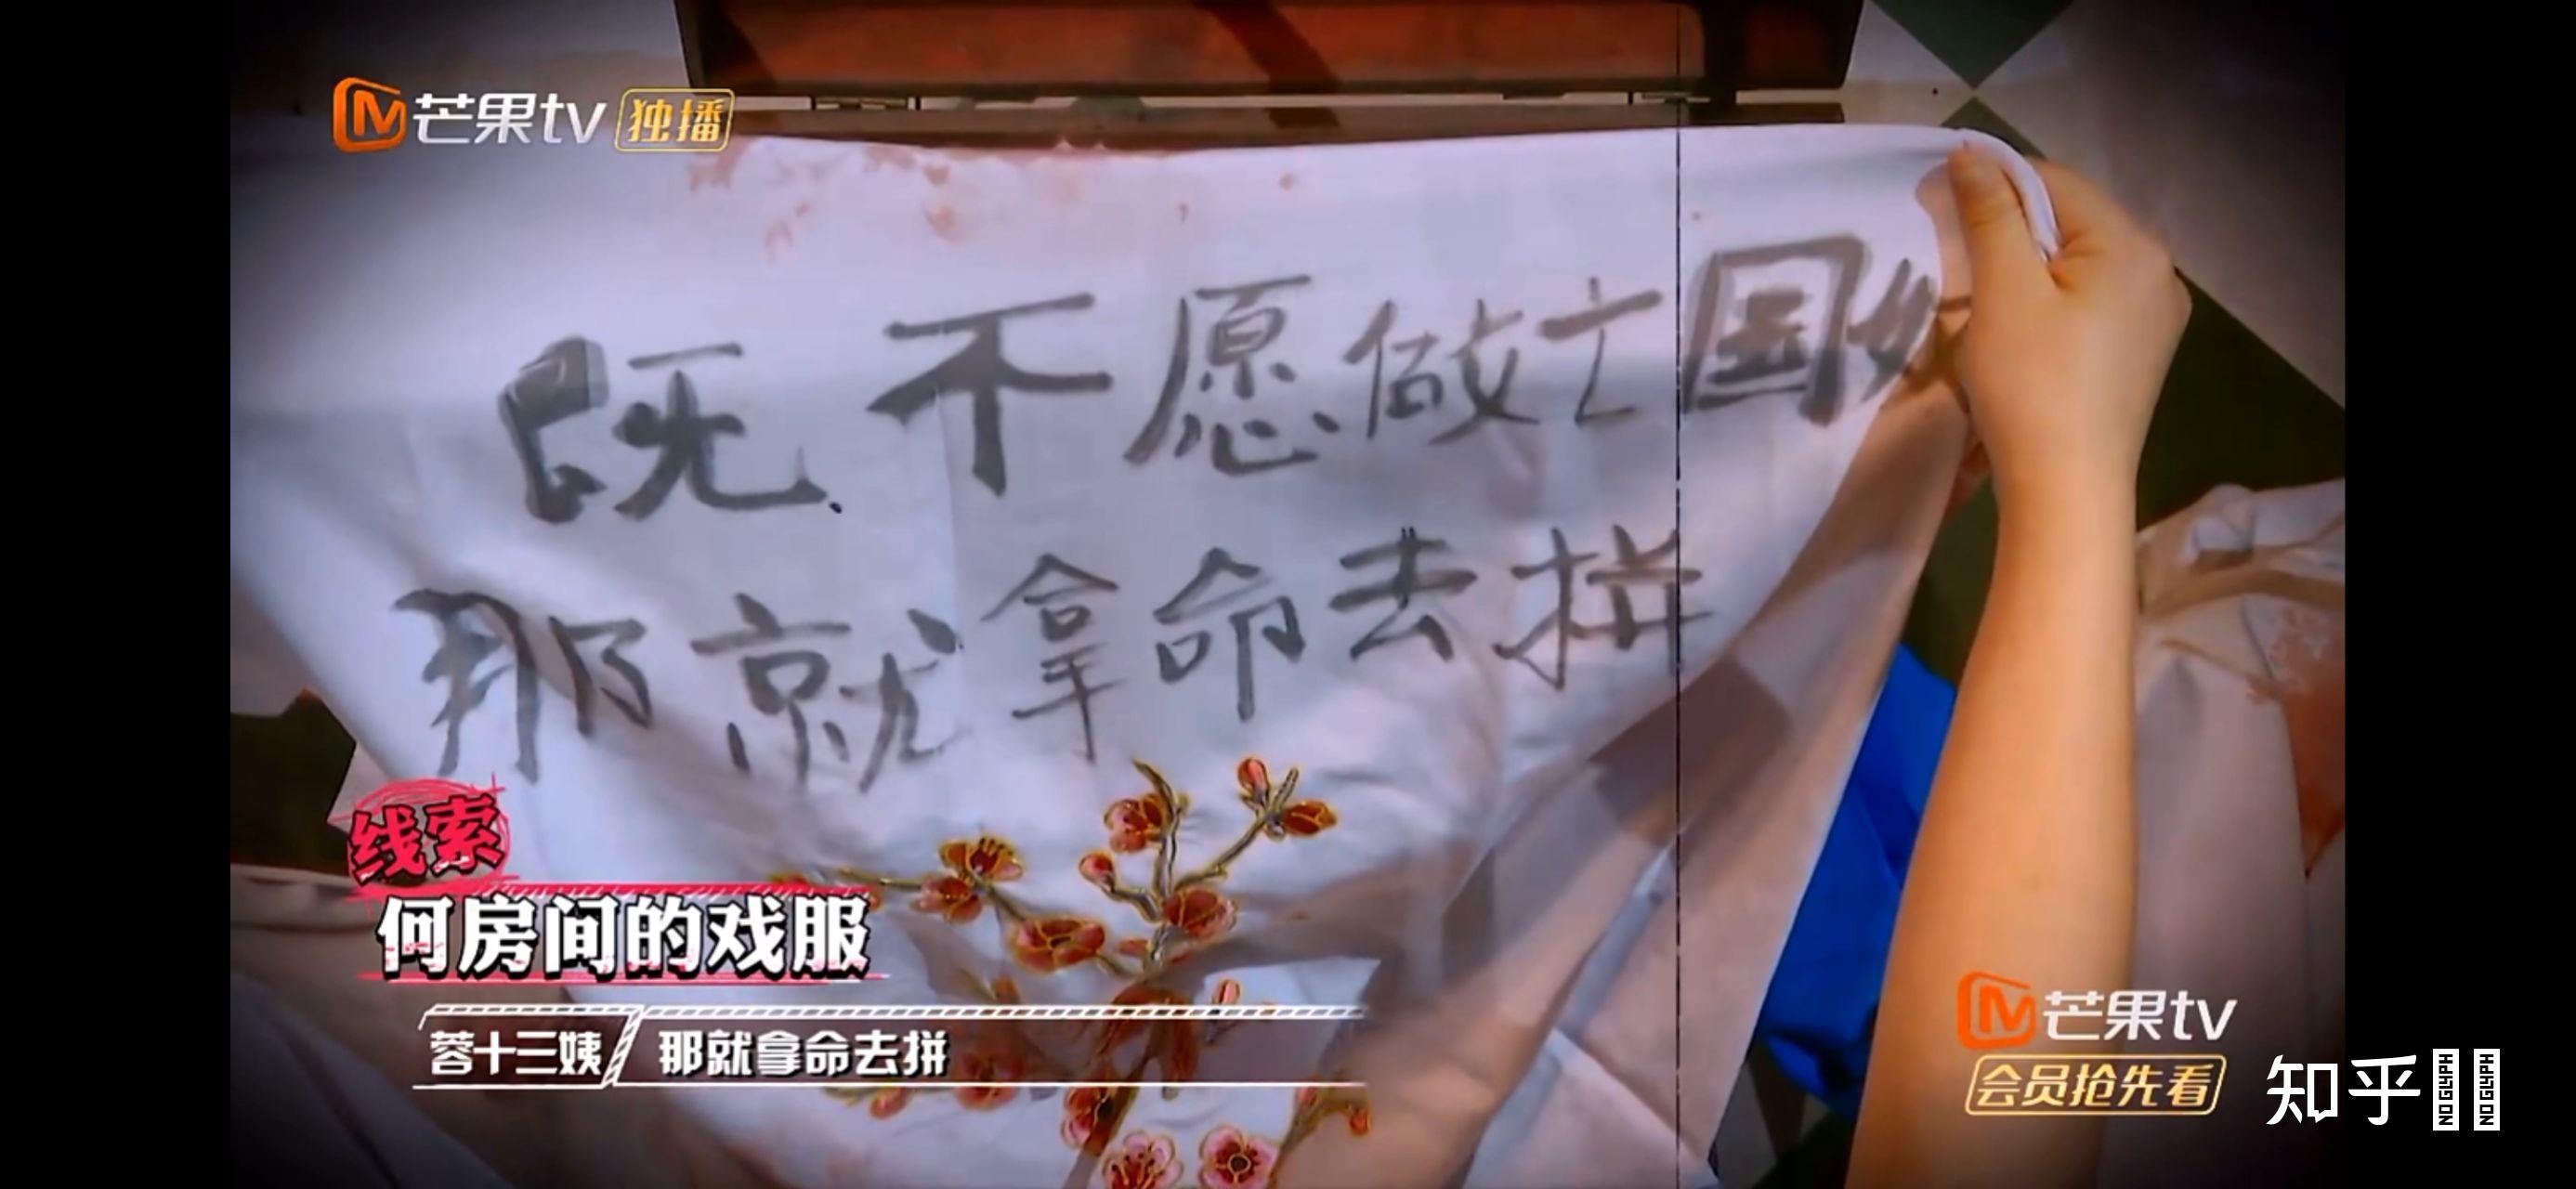 芒果tv 独播
既不愿做亡国
那就拿命去拼
线索
何房间的戏服
蓉十三姨 那就拿命去拼
芒果tv
会员抢先看
知乎